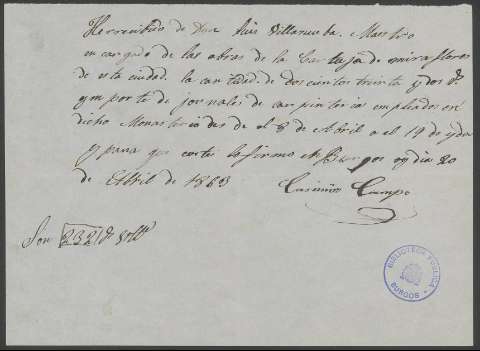 He recivido de Don Luis Villanueba. Maestro
encargado de las obras de la Cartuja de miraflores
de esta ciudad. la cantidad de doscientos treinta y dos rs
ymporte de jornales de carpinteria empleados en
dicho Monasterio desde el 8 de Abril a el 19 de ydm
y para que coste lo firmo en Burgos oy dia 20
de Abril de 1863
Casimiro Campo
Son 232 rs vellon
BIBLIOTECA PUBLICA
BURGOS